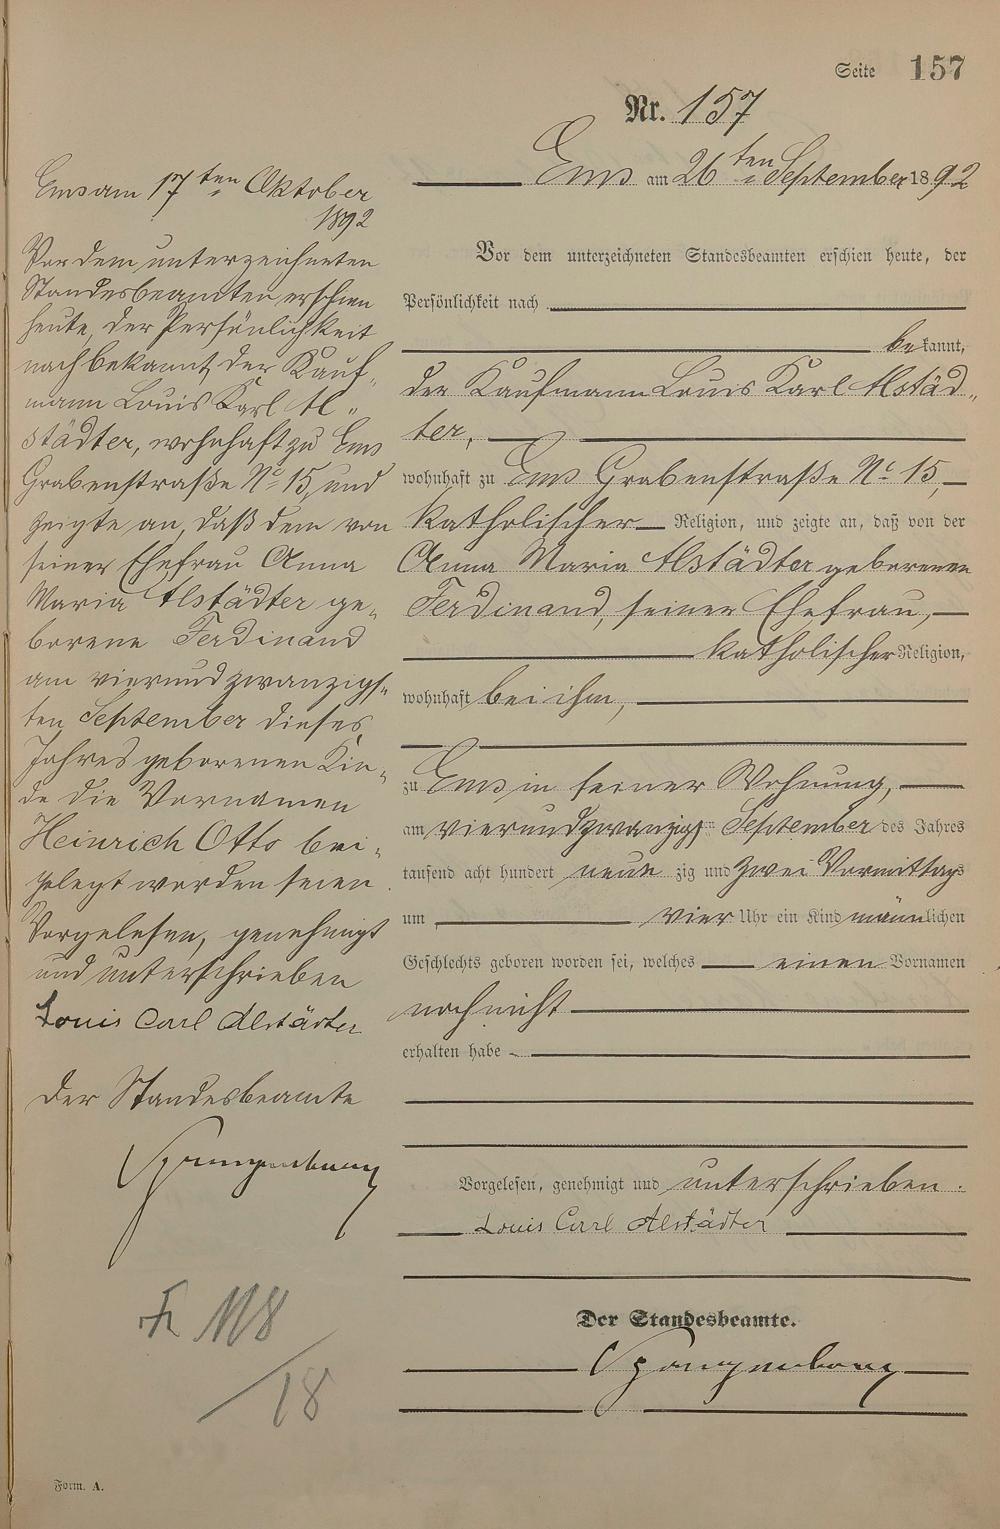 Seite 157
Nr. 157
Ems am 26ten September 1892
Vor dem unterzeichneten Standesbeamten erschien heute, der
Persönlichkeit nach
bekannt,
der Kaufmann Louis Karl Alstäd„
ter,
wohnhaft zu Ems Grabenstraße No 15,
katholischer Religion, und zeigte an, daß von der
Anna Maria Alstädter geborenen
Ferdinand, seiner Ehefrau,
katholischer Religion,
wohnhaft bei ihm,
zu Ems in seiner Wohnung,
am vierundzwanzigsten September des Jahres
tausend acht hundert neunzig und zwei Vormittags
um vier Uhr ein Kind männlichen
Geschlechts geboren worden sei, welches einen Vornamen
noch nicht
erhalten habe
Vorgelesen, genehmigt und unterschrieben.
Louis Carl Alstädter
Der Standesbeamte.
Ems am 17ten Oktober
1892
Vor dem unterzeichneten
Standesbeamten erschien
heute, der Persönlichkeit
nach bekannt, der Kauf„
mann Louis Karl Al„
städter, wohnhaft zu Ems
Grabenstraße No 15, und
zeigte an, daß dem von
seiner Ehefrau Anna
Maria Alstädter ge„
borene Ferdinand
am vierundzwanzigs„
ten September dieses
Jahres geborenen Kin„
de die Vornamen
Heinrich Otto bei„
gelegt worden seien.
Vorgelesen, genehmigt
und unterschrieben
Louis Carl Alstädter
Der Standesbeamte
18
Form. A.